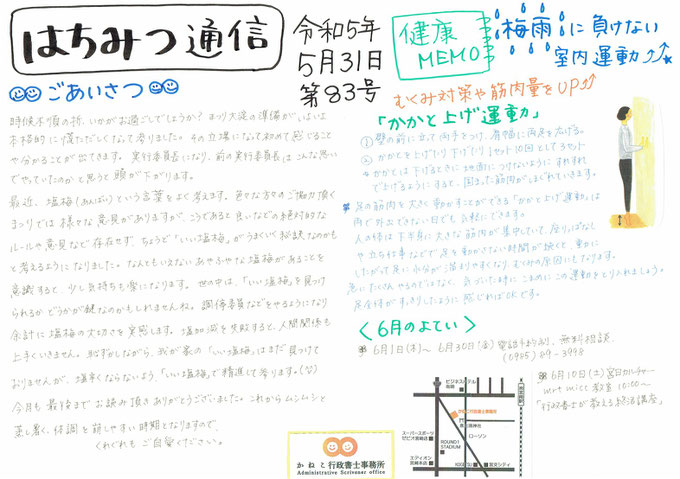 はちみつ通信
令和5年
5月31日
第83号
健康
MEMO
梅雨に負けない
室内運動
ごあいさつ
時候不順の折、いかがお過ごしでしょうか？まつり大洗の準備がいよいよ
本格的に慌ただしくなって参りました。その立場になって初めて感じること
や分かることが出てきます。実行委員長になり、前の実行委員長はこんな思い
でやっていたのかと思うと頭が下がります。
最近、塩梅(あんばい)という言葉をよく考えます。色々な方々のご協力頂く
まつりでは様々な意見がありますが、こうであると良いなどの絶対的な
ルールや意見など存在せず、ちょうど「いい塩梅」がうまくいく秘訣なのかも
と考えるようになりました。なんともいえないあやふやな塩梅があることを
意識すると、少し気持ちも楽になります。世の中は、「いい塩梅」を見つけ
られるかどうかが鍵なのかもしれませんね。調停委員などをやるようになり
余計に塩梅の大切さを実感します。塩加減を失敗すると、人間関係も
上手くいきません。恥ずかしながら、我が家の「いい塩梅」はまだ見つけて
おりませんが、塩辛くならないよう、「いい塩梅」で精進して参ります。(笑)
今月も最後までお読み頂きありがとうございました。これからムシムシと
蒸し暑く、体調も崩しやすい時期となりますので、
くれぐれもご自愛ください。
むくみ対策や筋肉量をUP
「かかと上げ運動」
①壁の前に立って両手をつけ、肩幅に両足を広げる。
②かかとを上げたり下げたり1セット10回として3セット
*かかとは下げるときに地面につけないようにすれすれ
で上げるようにすると、固まった筋肉がほぐれていきます。
足の筋肉を大きく動かすことができる「かかと上げ運動」は
雨で外出できない日でもお軽にできます。
人の体は下半身に大きな筋肉が集中していて、座りっぱなし
や立ち仕事などで足を動かさない時間が続くと、重力に
したがって足に水分が溜まりやすくなり、むくみの原因にもなります。
急にたくさんやるのではなく、気づいた時に、こまめにこの運動をとり入れましょう。
足全体がすっきりしたように感じればOKです。
〈6月のよてい〉
6月1日(木)～6月30日(金) 電話予約あり、無料相談
6月10日(土)宮日カルチャー
mrt micc 教室 10:00～
「行政書士が教える終活講座」
かねこ行政書士事務所
Administrative Scrivener office
ビジネスホテル
かねこ行政書士事務所
ローソン
スーパースポーツ
ゼビオ宮崎店
ROUND1
STADIUM
エディオン
宮崎本店
宮交シティ
南宮崎駅